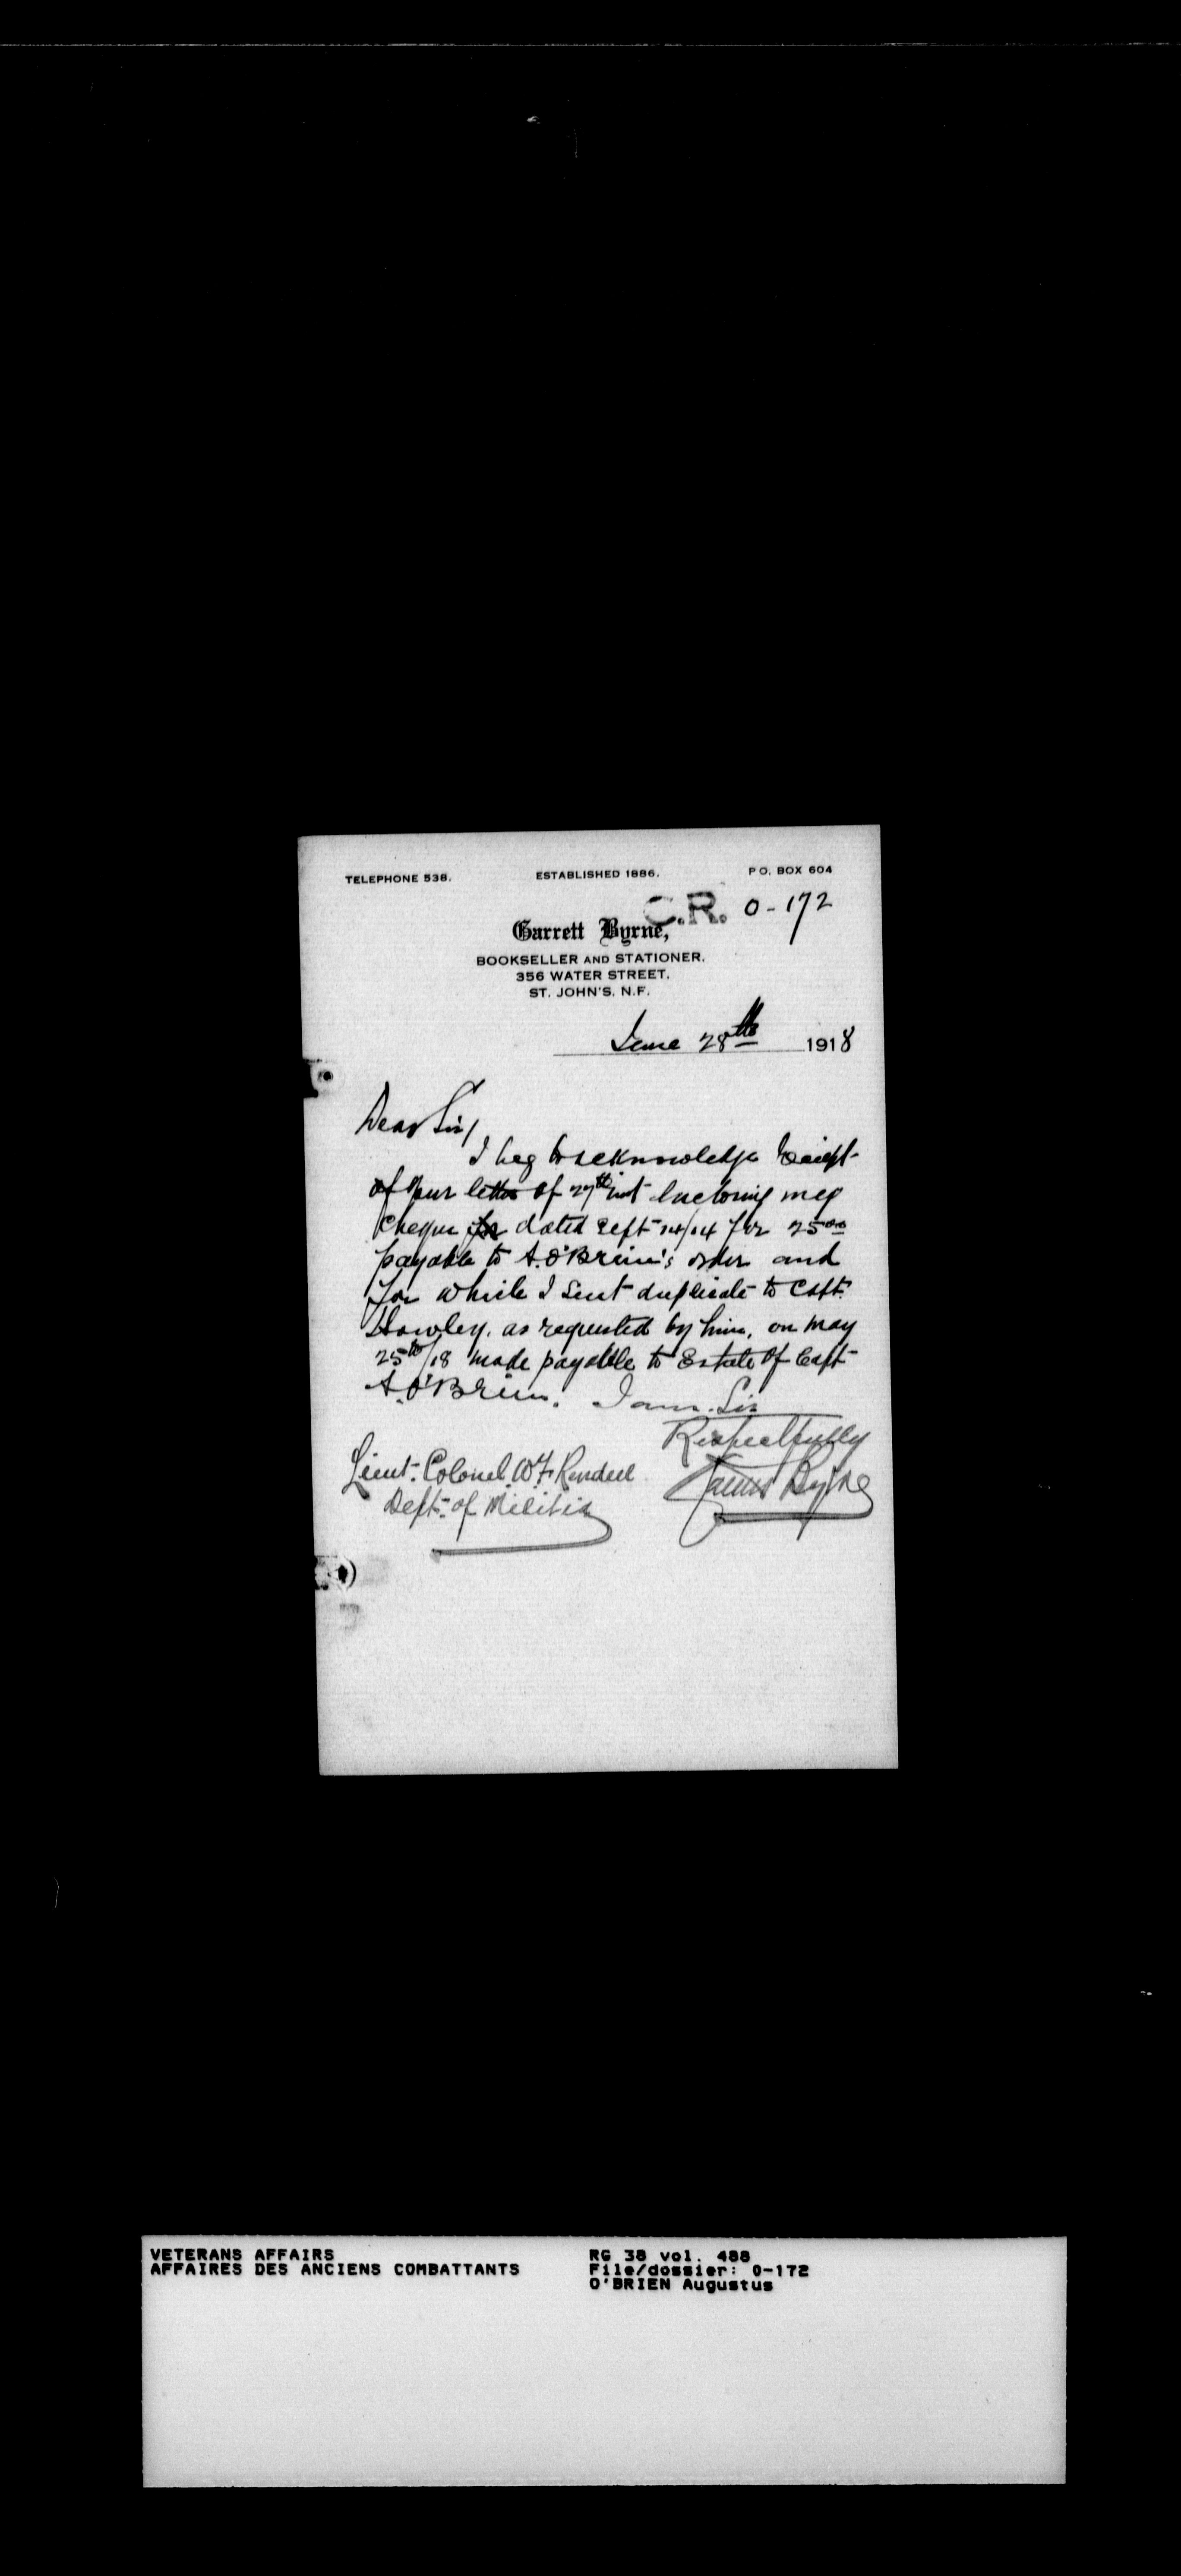 TELEPHONE 538. ESTABLISHED 1886. P.O. BOX 604
C.R. 0-172
Garrett Byrne,
BOOKSELLER AND STATIONER.
356 WATER STREET.
ST. JOHN'S, N.F.
June 28th 1918
Dear Sir/
I beg to acknowledge receipt
of your letter of 27th inst enclosing my
cheque for dated Sept 14/14 for 25 00
payable to A. O'Brien's order and
for which I sent duplicate to Capt.
Howley, as requested by him, on May
25th/18 made payable to Estate of Capt
A. O'Brien. I am. Sir
Respectfully
Lieut. Colonel W F Rendell Byrne
Dept. of Militia
VETERANS AFFAIRS RG 38 vol. 488
AFFAIRES DES ANCIENS COMBATTANTS File/dossier: O-172
O'BRIEN Augustus